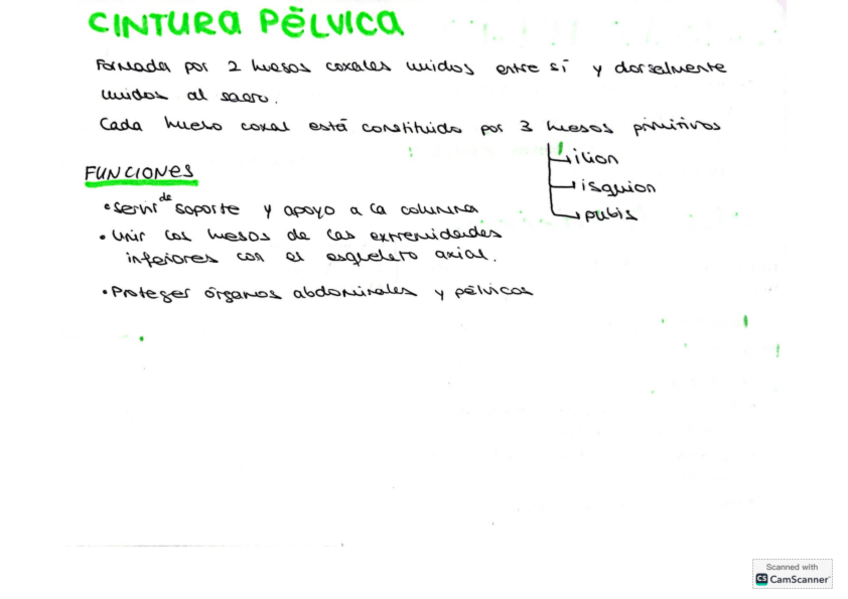 CINTURA PÉLVICA
Formada por 2 huesos coxales unidos entre sí y dorsalmente
unidos al sacro.
Cada hueso coxal está constituido por 3 huesos primitivos
ilion
isquion
pubis
FUNCIONES
• Servir de soporte y apoyo a la columna
• Unir los huesos de las extremidades
inferiores con el esqueleto axial.
• Proteger órganos abdominales y pélvicos
Scanned with
CS CamScanner